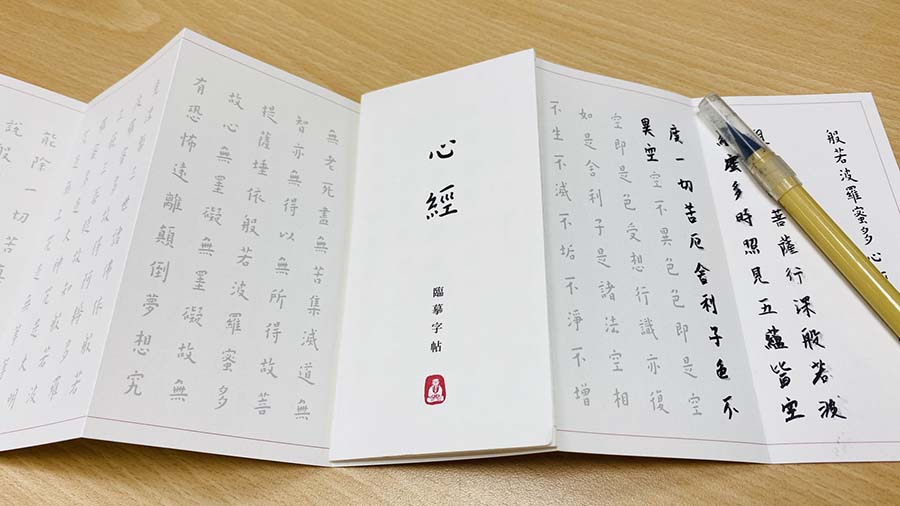 般若波羅蜜多心
菩薩行深般若波
蜜多時照見五蘊皆空
度一切苦厄舍利子色不
異空空不異色色即是空
空即是色受想行識亦復
如是舍利子是諸法空相
不生不滅不垢不淨不增
心經
臨摹字帖
無老死盡無苦集滅道無
智亦無得以無所得故菩
提薩埵依般若波羅蜜多
故心無罣礙無罣礙故無
有恐怖遠離顛倒夢想究
能除一切苦真
說般